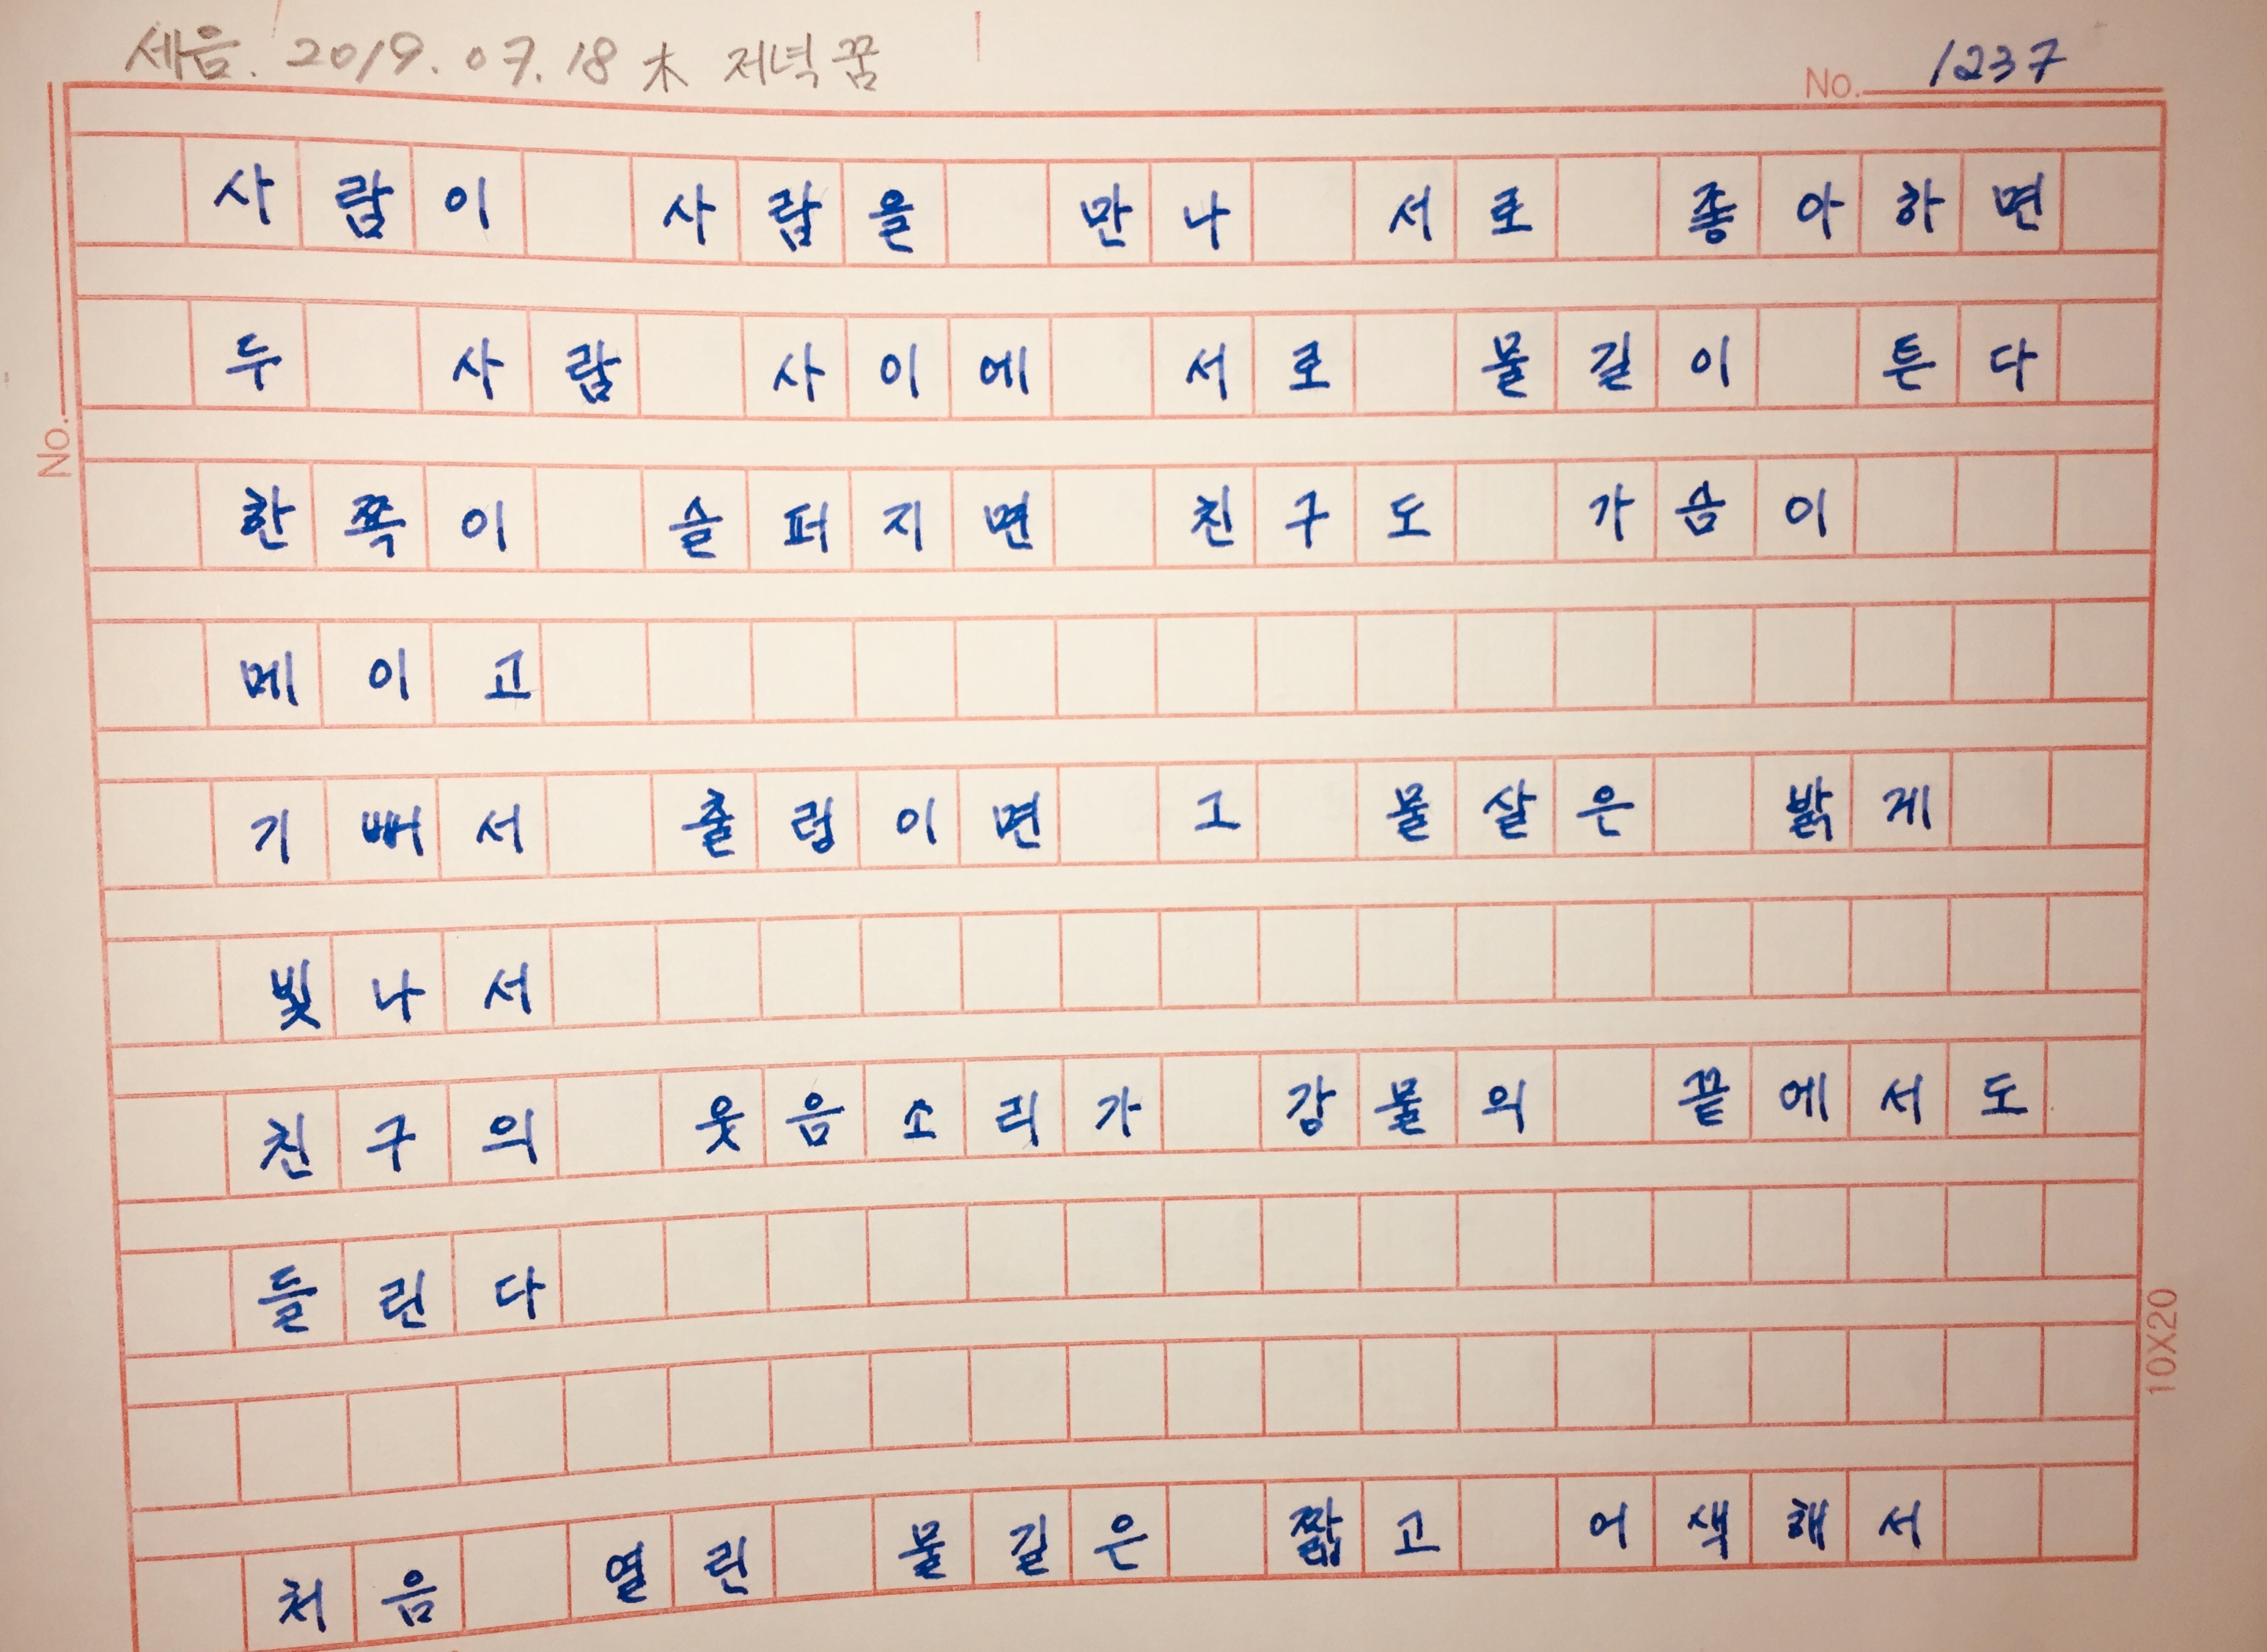 세음. 2019. 07. 18 木 저녁꿈
No. 1237
사람이 사람을 만나 서로 좋아하면
두 사람 사이에 서로 물길이 튼다
No.
한쪽이 슬퍼지면 친구도 가슴이
메이고
기뻐서 출렁이면 그 물살은 밝게
빛나서
친구의 웃음소리가 강물의 끝에서도
들린다
10X20
처음 열린 물길은 짧고 어색해서